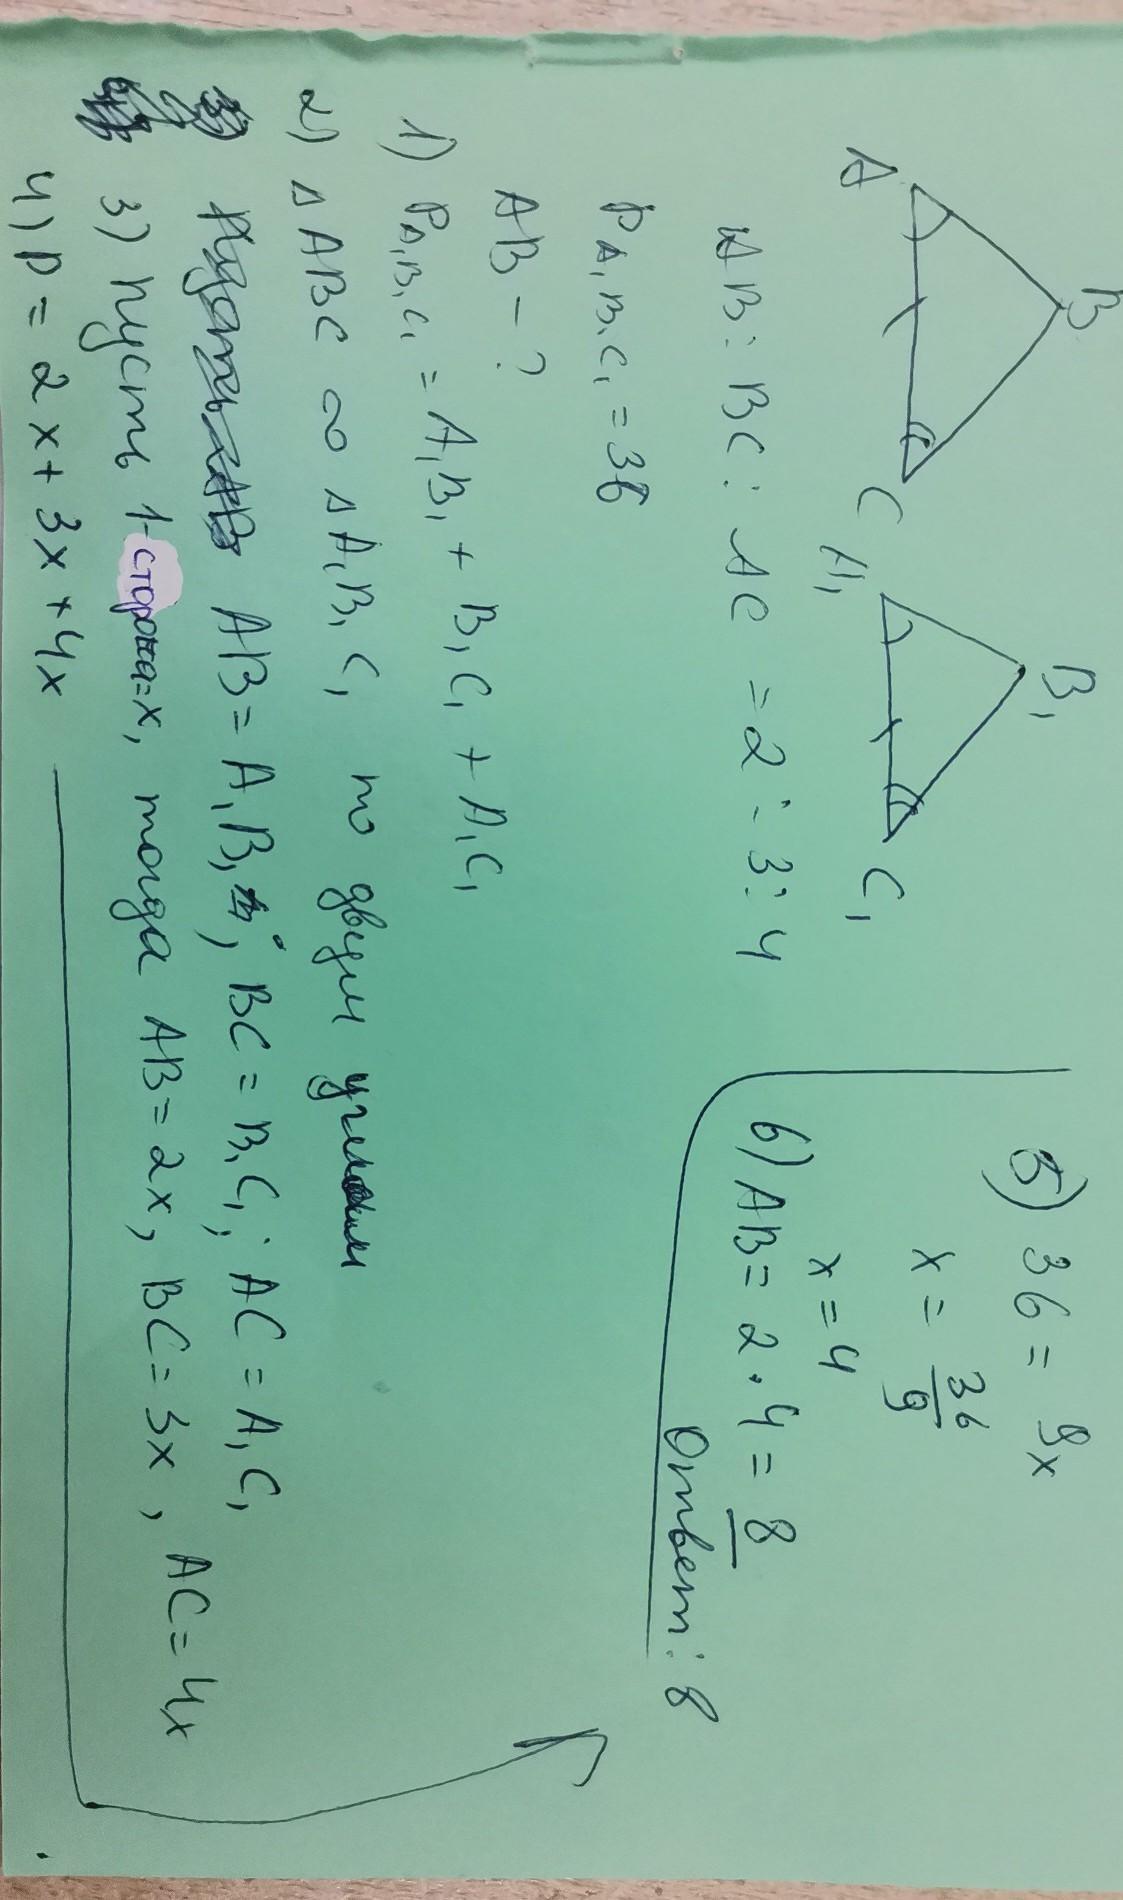 A B C A₁ B₁ C₁
AB : BC : AC = 2 : 3 : 4
P A₁B₁C₁ = 36
AB - ?
1) P A₁B₁C₁ = A₁B₁ + B₁C₁ + A₁C₁
2) △ABC ∞ △A₁B₁C₁ по двум углам
AB = A₁B₁; BC = B₁C₁; AC = A₁C₁
3) Пусть 1-сторона=x, тогда AB=2x, BC=3x, AC=4x
4) P = 2x + 3x + 4x
5) 36 = 9x
x = 36/9
x = 4
6) AB = 2 · 4 = 8
Ответ: 8